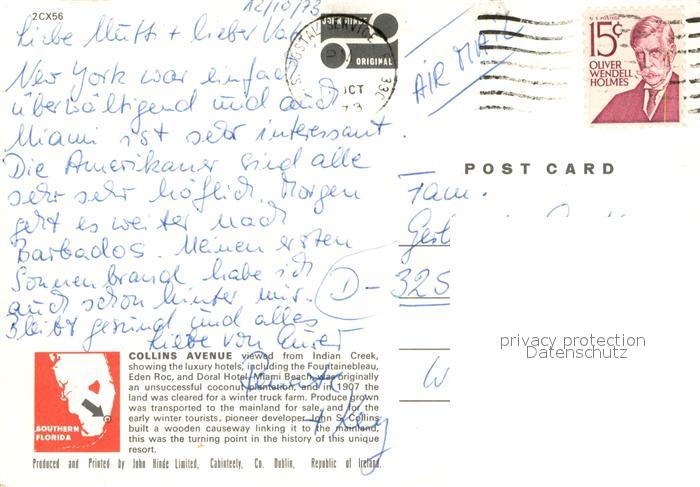 2CX56
12/10/73
Liebe Mutti + lieber Vati
New York war einfach
überwältigend und auch
Miami ist sehr interessant.
Die Amerikaner sind alle
sehr sehr höflich. Morgen
geht es weiter nach
Barbados. Meinen ersten
Sonnenbrand habe ich
auch schon hinter mir.
Bleibt gesund und alles
Liebe von Eurer
JOHN HINDE
ORIGINAL
POSTAL SERVICE
OCT
73
AIR MAIL
U.S. POSTAGE
15¢
OLIVER
WENDELL
HOLMES
POST CARD
Fam.
D-325
W
privacy protection
Datenschutz
SOUTHERN
FLORIDA
COLLINS AVENUE viewed from Indian Creek,
showing the luxury hotels, including the Fountainebleau,
Eden Roc, and Doral Hotel. Miami Beach was originally
an unsuccessful coconut plantation, and in 1907 the
land was cleared for a winter truck farm. Produce grown
was transported to the mainland for sale, and for the
early winter tourists, pioneer developer John S. Collins
built a wooden causeway linking it to the mainland,
this was the turning point in the history of this unique
resort.
Produced and Printed by John Hinde Limited, Cabinteely, Co. Dublin, Republic of Ireland.